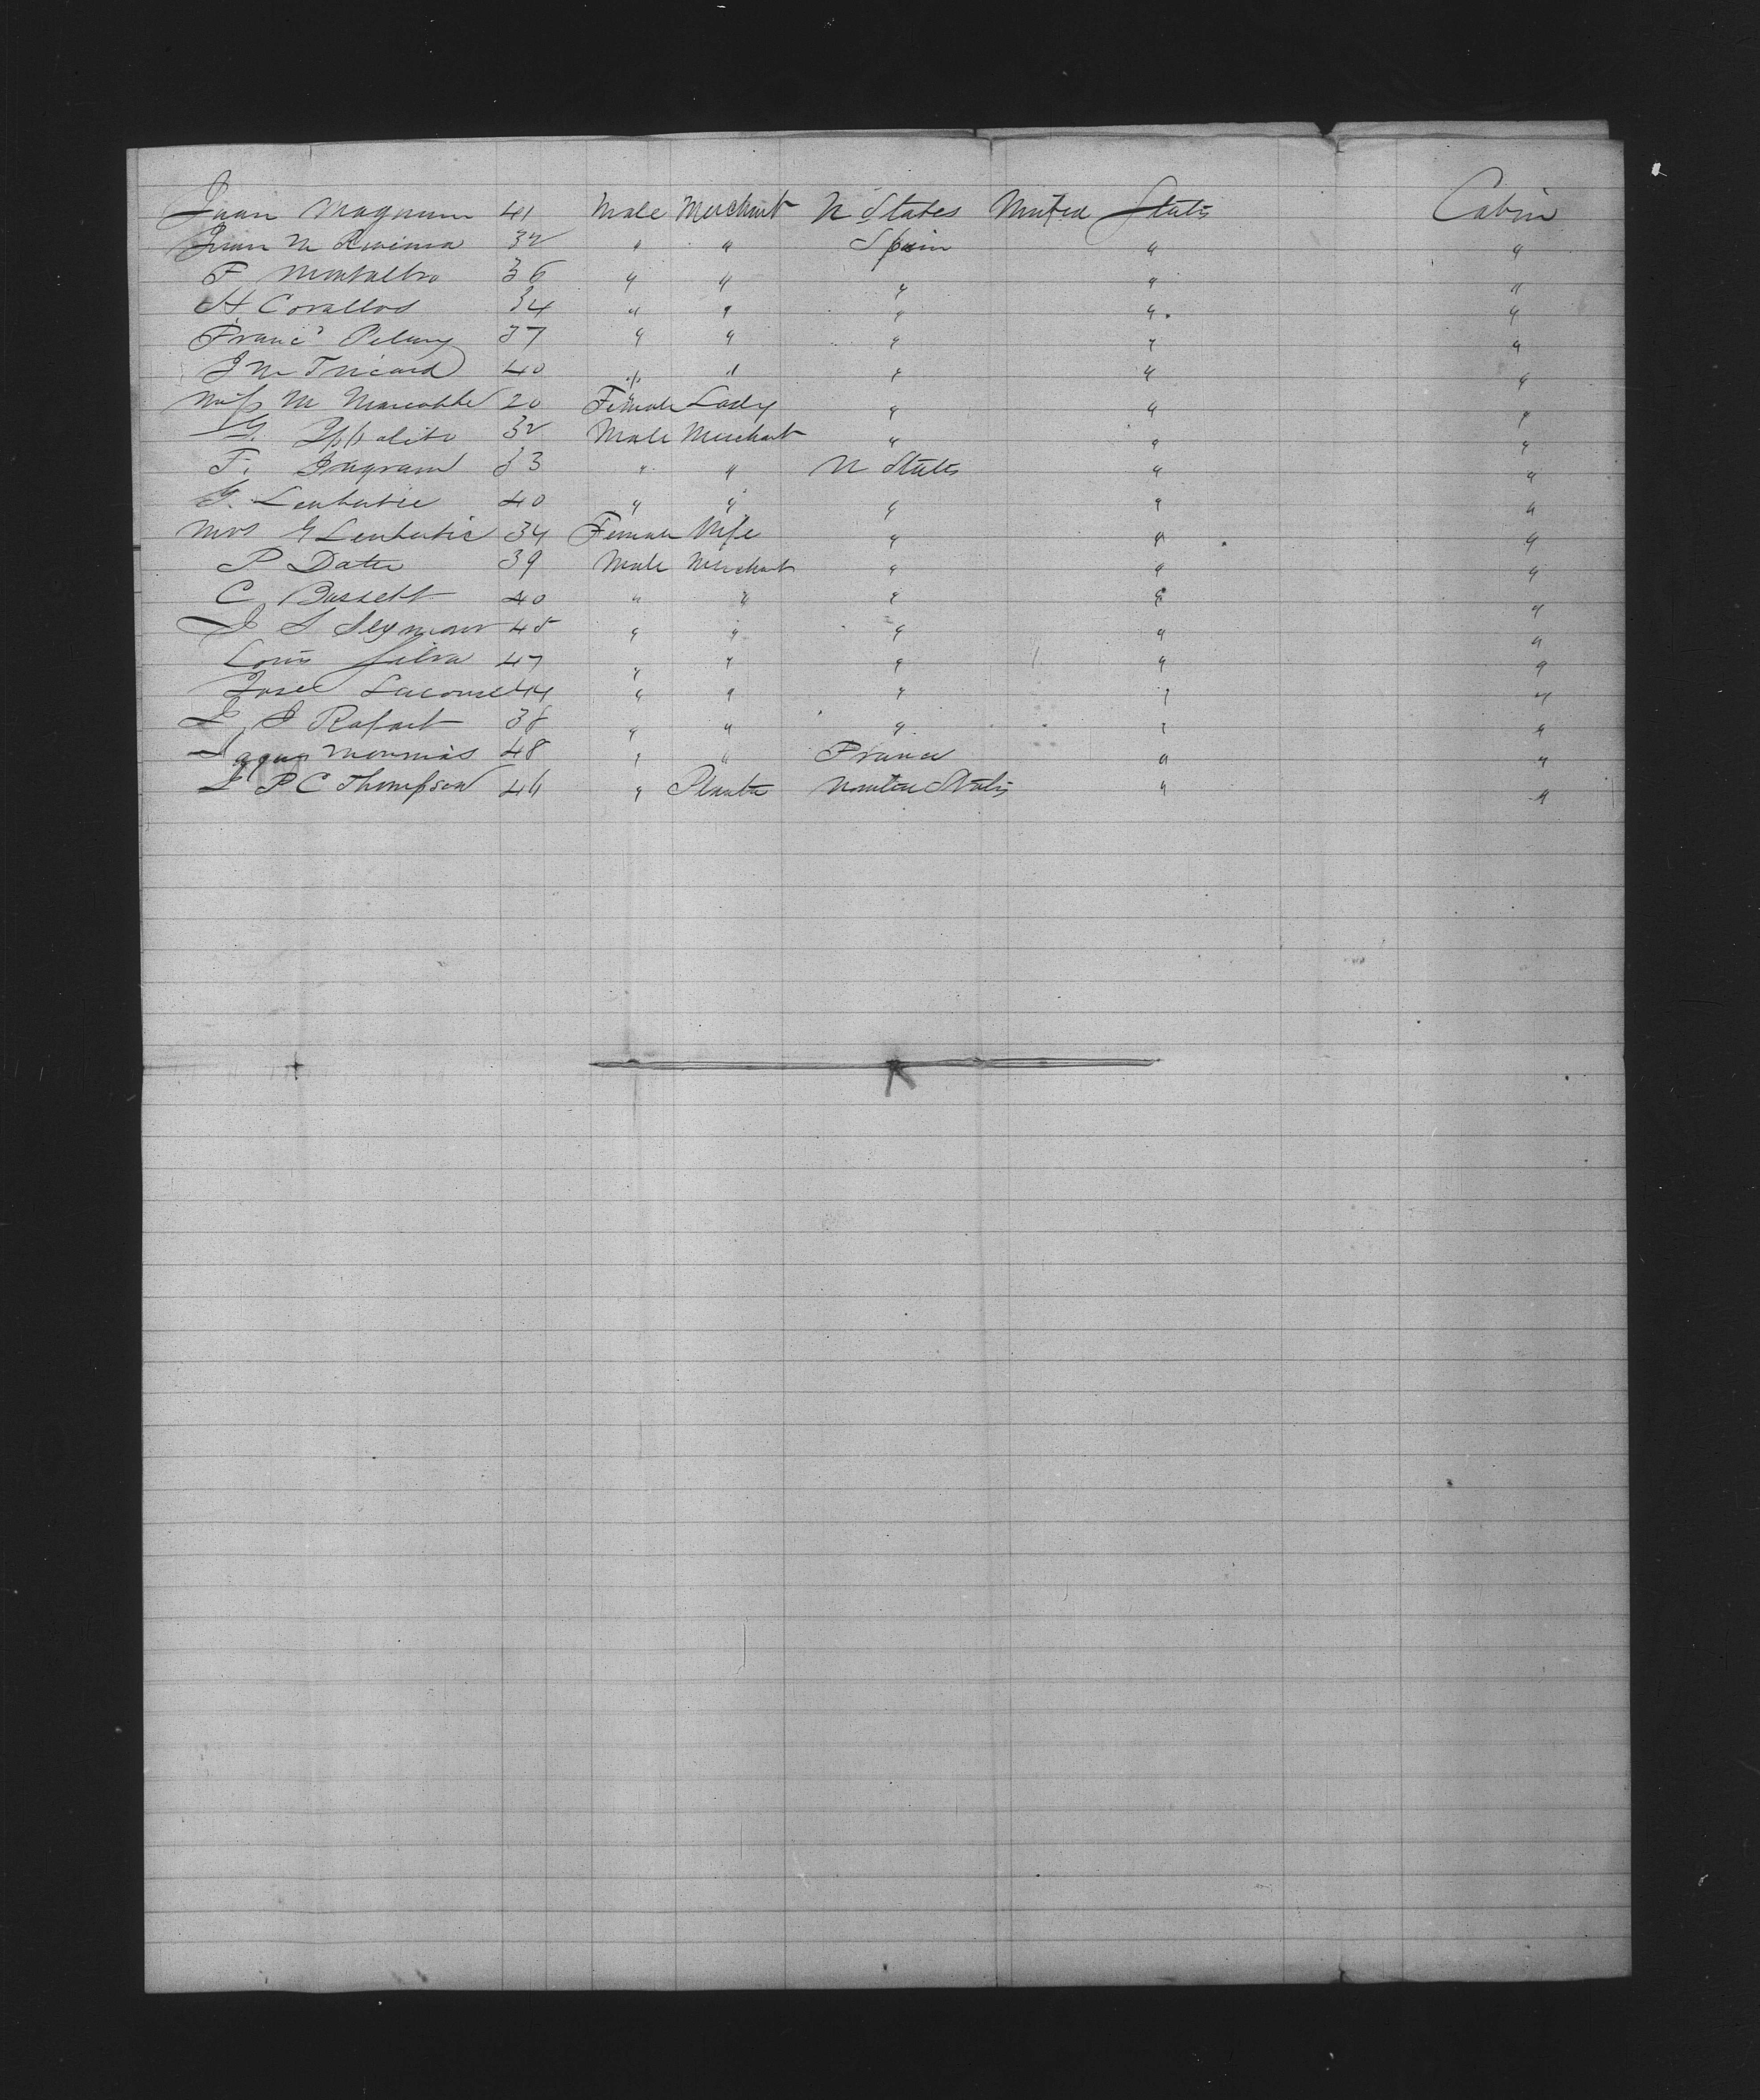 Juan Magnum 41 Male Merchant U States United States Cabin
Juan M 32 " " Spain " "
F Montalbo 36 " " " " "
H. Corallos 34 " " " " "
Franc° 37 " " " " "
J M Tricard 40 " " " " "
Miss M 20 Female Lady " " "
G. Ippolito 32 Male Merchant " " "
F. Ingram 33 " " U States " "
G. Leubutie 40 " " " " "
Mrs G Leubutie 34 Female Wife " " "
P Dater 39 Male Merchant " " "
C Bassett 40 " " " " "
J S Seymour 45 " " " " "
Louis Silva 47 " " " " "
Jose 44 " " " " "
L J Rafart 38 " " " " "
48 " " France " "
L P C Thompson 46 " Planter United States " "